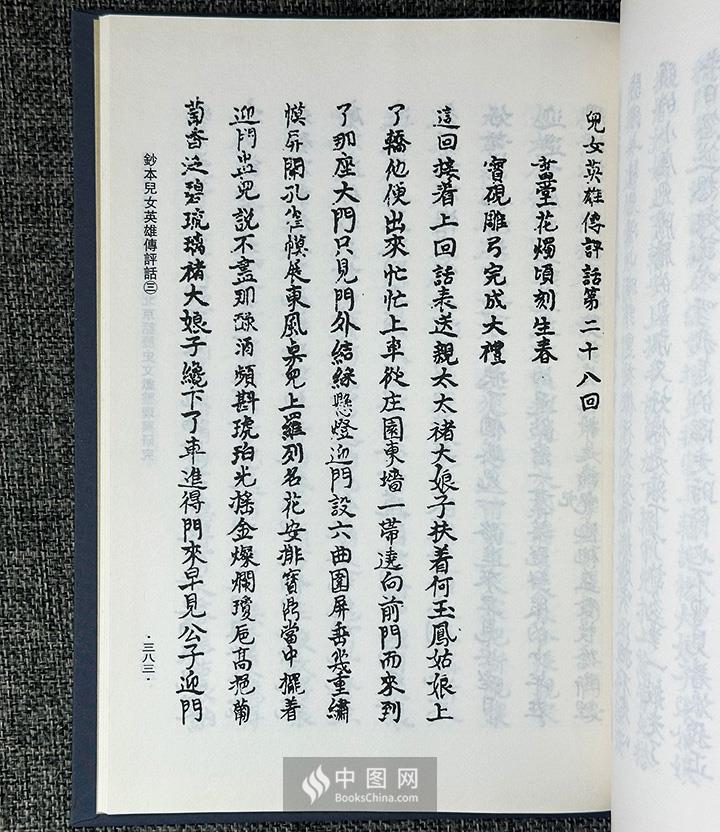 兒女英雄傳評話第二十八回
畫堂花燭頃刻生春
寳硯雕弓完成大禮
這回接着上回話表送親太太禇大娘子扶着何玉鳳姑娘上
了轎他便出來忙忙上車從庄園東墻一帶遶向前門而來到
了那座大門只見門外結綵懸燈迎門設六曲圍屏垂幾重繡
幙屏開孔雀幙展東風桌兒上羅列名花安排寳鼎當中擺着
迎門盅兒說不盡那醁酒頻斟琥珀光搖金燦爛瓊卮髙挹蘭
萄香泛碧琉璃禇大娘子纔下了車進得門來早見公子迎門
鈔本兒女英雄傳評話㊂
·三八三·
中图网
BooksChina.com